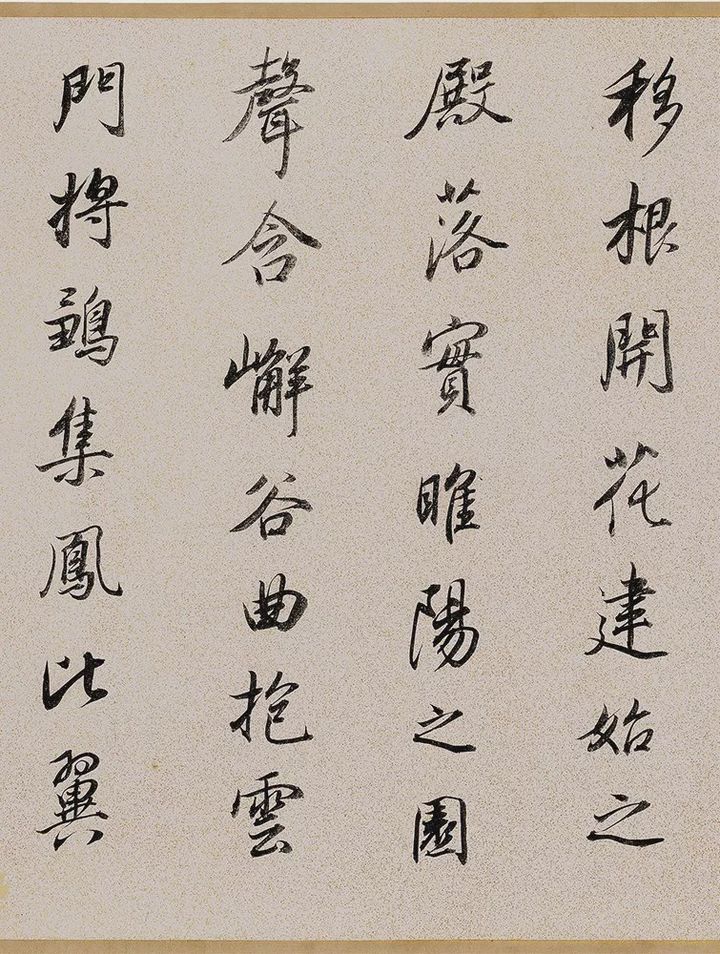 移根開花建始之
殿落實睢陽之園
聲含嶰谷曲抱雲
門將鶵集鳳比翼